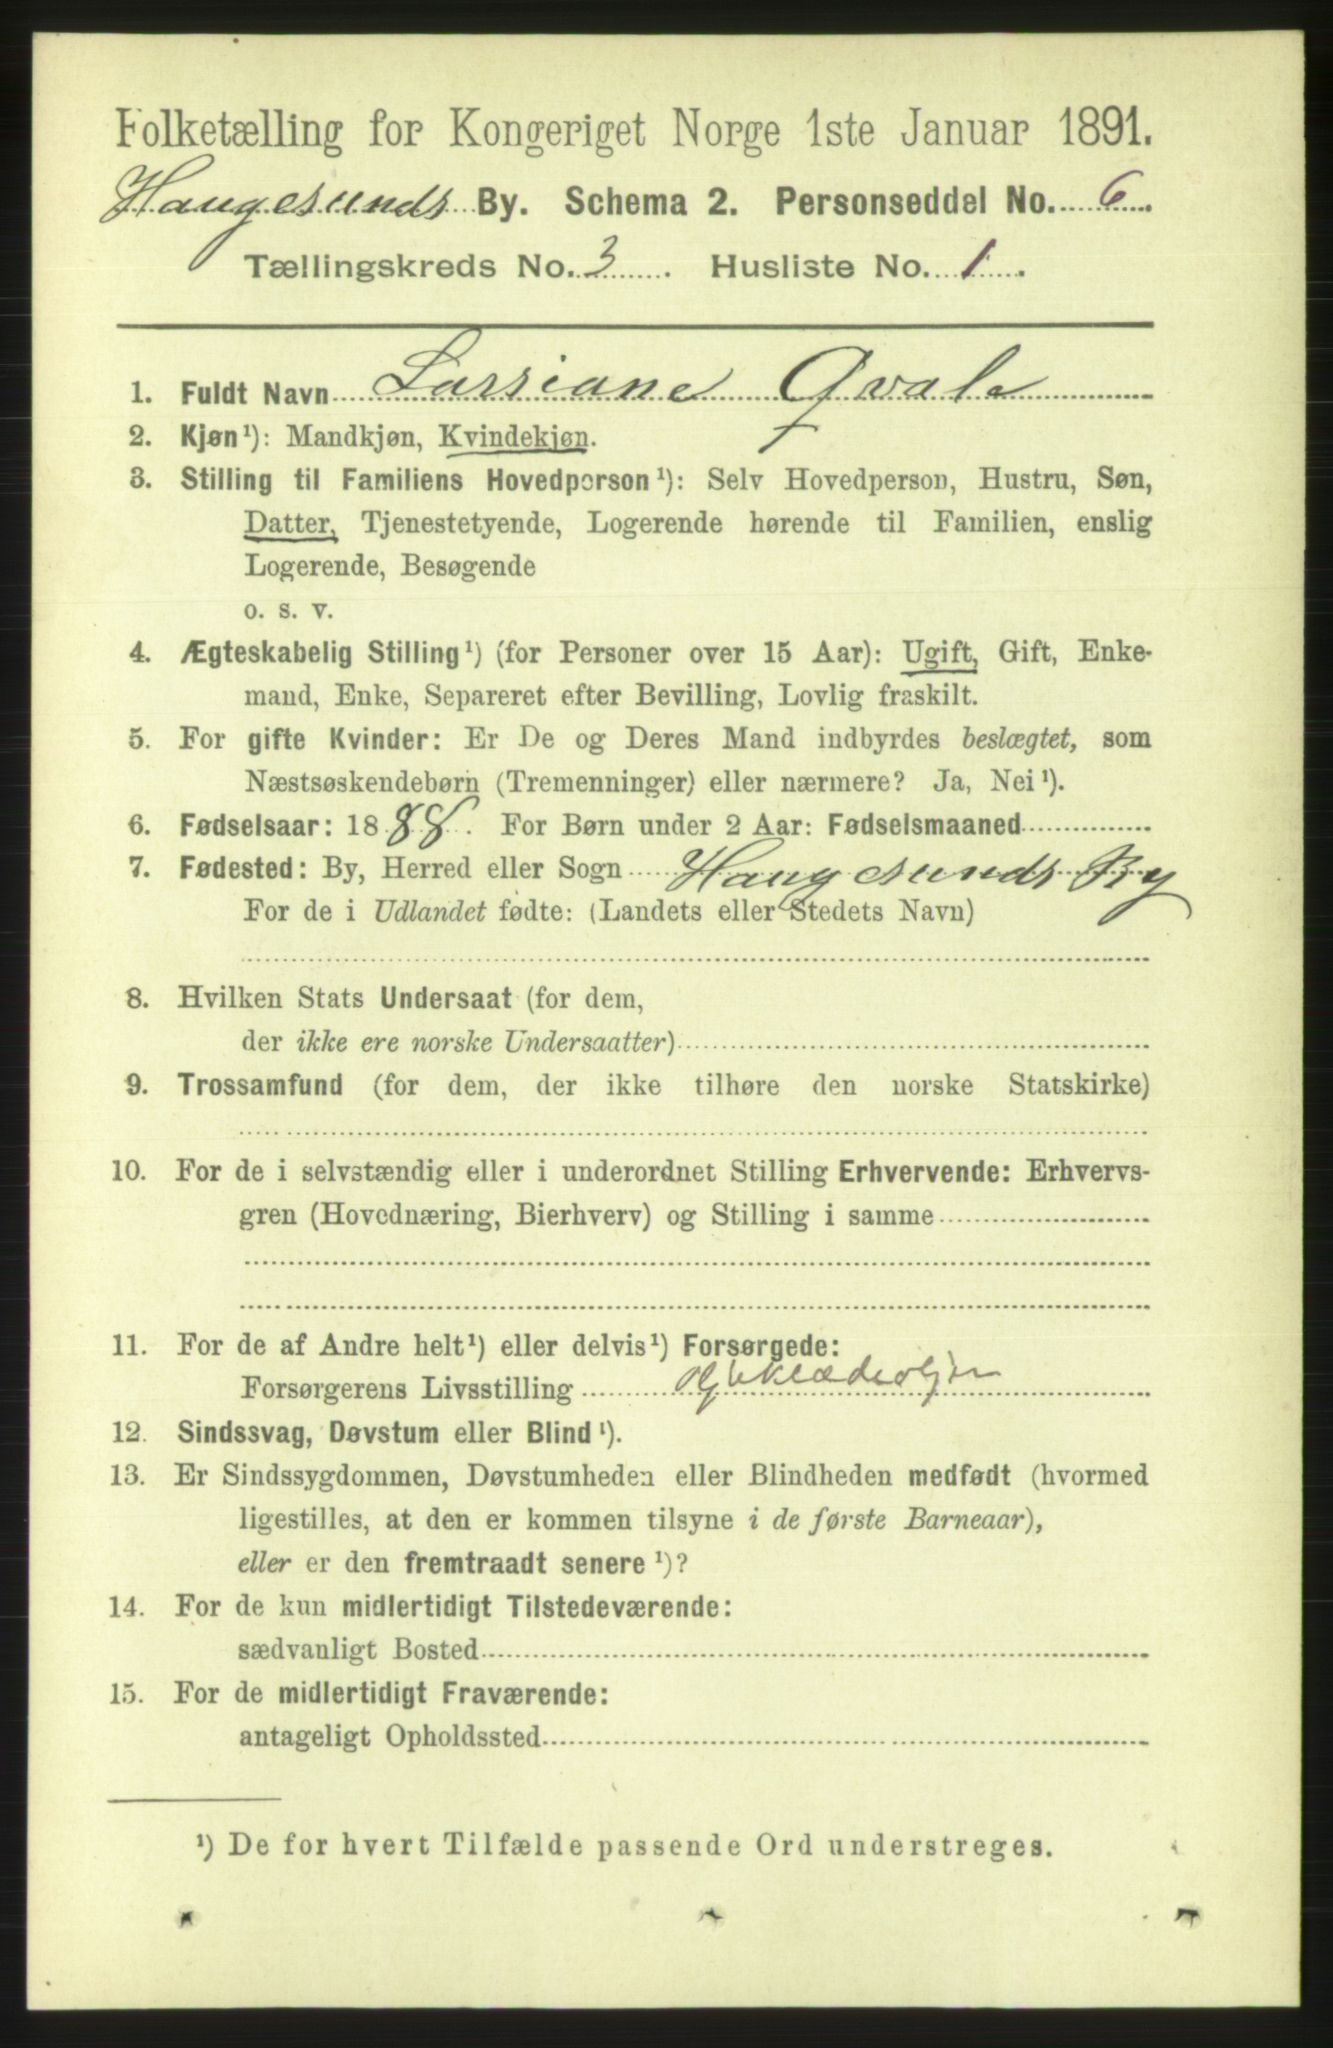 Folketælling for Kongeriget Norge 1ste Januar 1891.
Haugesunds By. Schema 2. Personseddel No. 6.
Tællingskreds No. 3. Husliste No. 1.
1. Fuldt Navn Larsiane Qvale
2. Kjøn¹): Mandkjøn, Kvindekjøn.
3. Stilling til Familiens Hovedperson¹): Selv Hovedperson, Hustru, Søn,
Datter, Tjenestetyende, Logerende hørende til Familien, enslig
Logerende, Besøgende
o. s. v.
4. Ægteskabelig Stilling¹) (for Personer over 15 Aar): Ugift, Gift, Enke-
mand, Enke, Separeret efter Bevilling, Lovlig fraskilt.
5. For gifte Kvinder: Er De og Deres Mand indbyrdes beslægtet, som
Næstsøskendebørn (Tremenninger) eller nærmere? Ja, Nei¹).
6. Fødselsaar: 1888. For Børn under 2 Aar: Fødselsmaaned
7. Fødested: By, Herred eller Sogn Haugesunds By
For de i Udlandet fødte: (Landets eller Stedets Navn)
8. Hvilken Stats Undersaat (for dem,
der ikke ere norske Undersaatter)
9. Trossamfund (for dem, der ikke tilhøre den norske Statskirke)
10. For de i selvstændig eller i underordnet Stilling Erhvervende: Erhvervs-
gren (Hovednæring, Bierhverv) og Stilling i samme
11. For de af Andre helt¹) eller delvis¹) Forsørgede:
Forsørgerens Livsstilling
12. Sindssvag, Døvstum eller Blind¹).
13. Er Sindssygdommen, Døvstumheden eller Blindheden medfødt (hvormed
ligestilles, at den er kommen tilsyne i de første Barneaar),
eller er den fremtraadt senere¹)?
14. For de kun midlertidigt Tilstedeværende:
sædvanligt Bosted
15. For de midlertidigt Fraværende:
antageligt Opholdssted
¹) De for hvert Tilfælde passende Ord understreges.